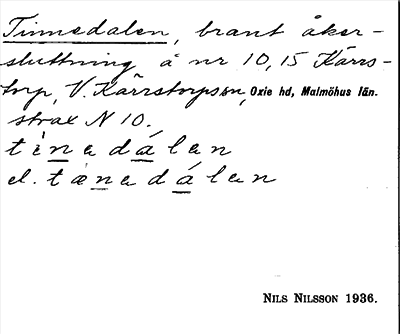 Tinnedalen, brant åker-
sluttning å nr 10, 15 Kärrs-
torp, V. Kärrstorps sn, Oxie hd, Malmöhus län.
strax N 10.
tìnadálan
el. tænadálan
NILS NILSSON 1936.